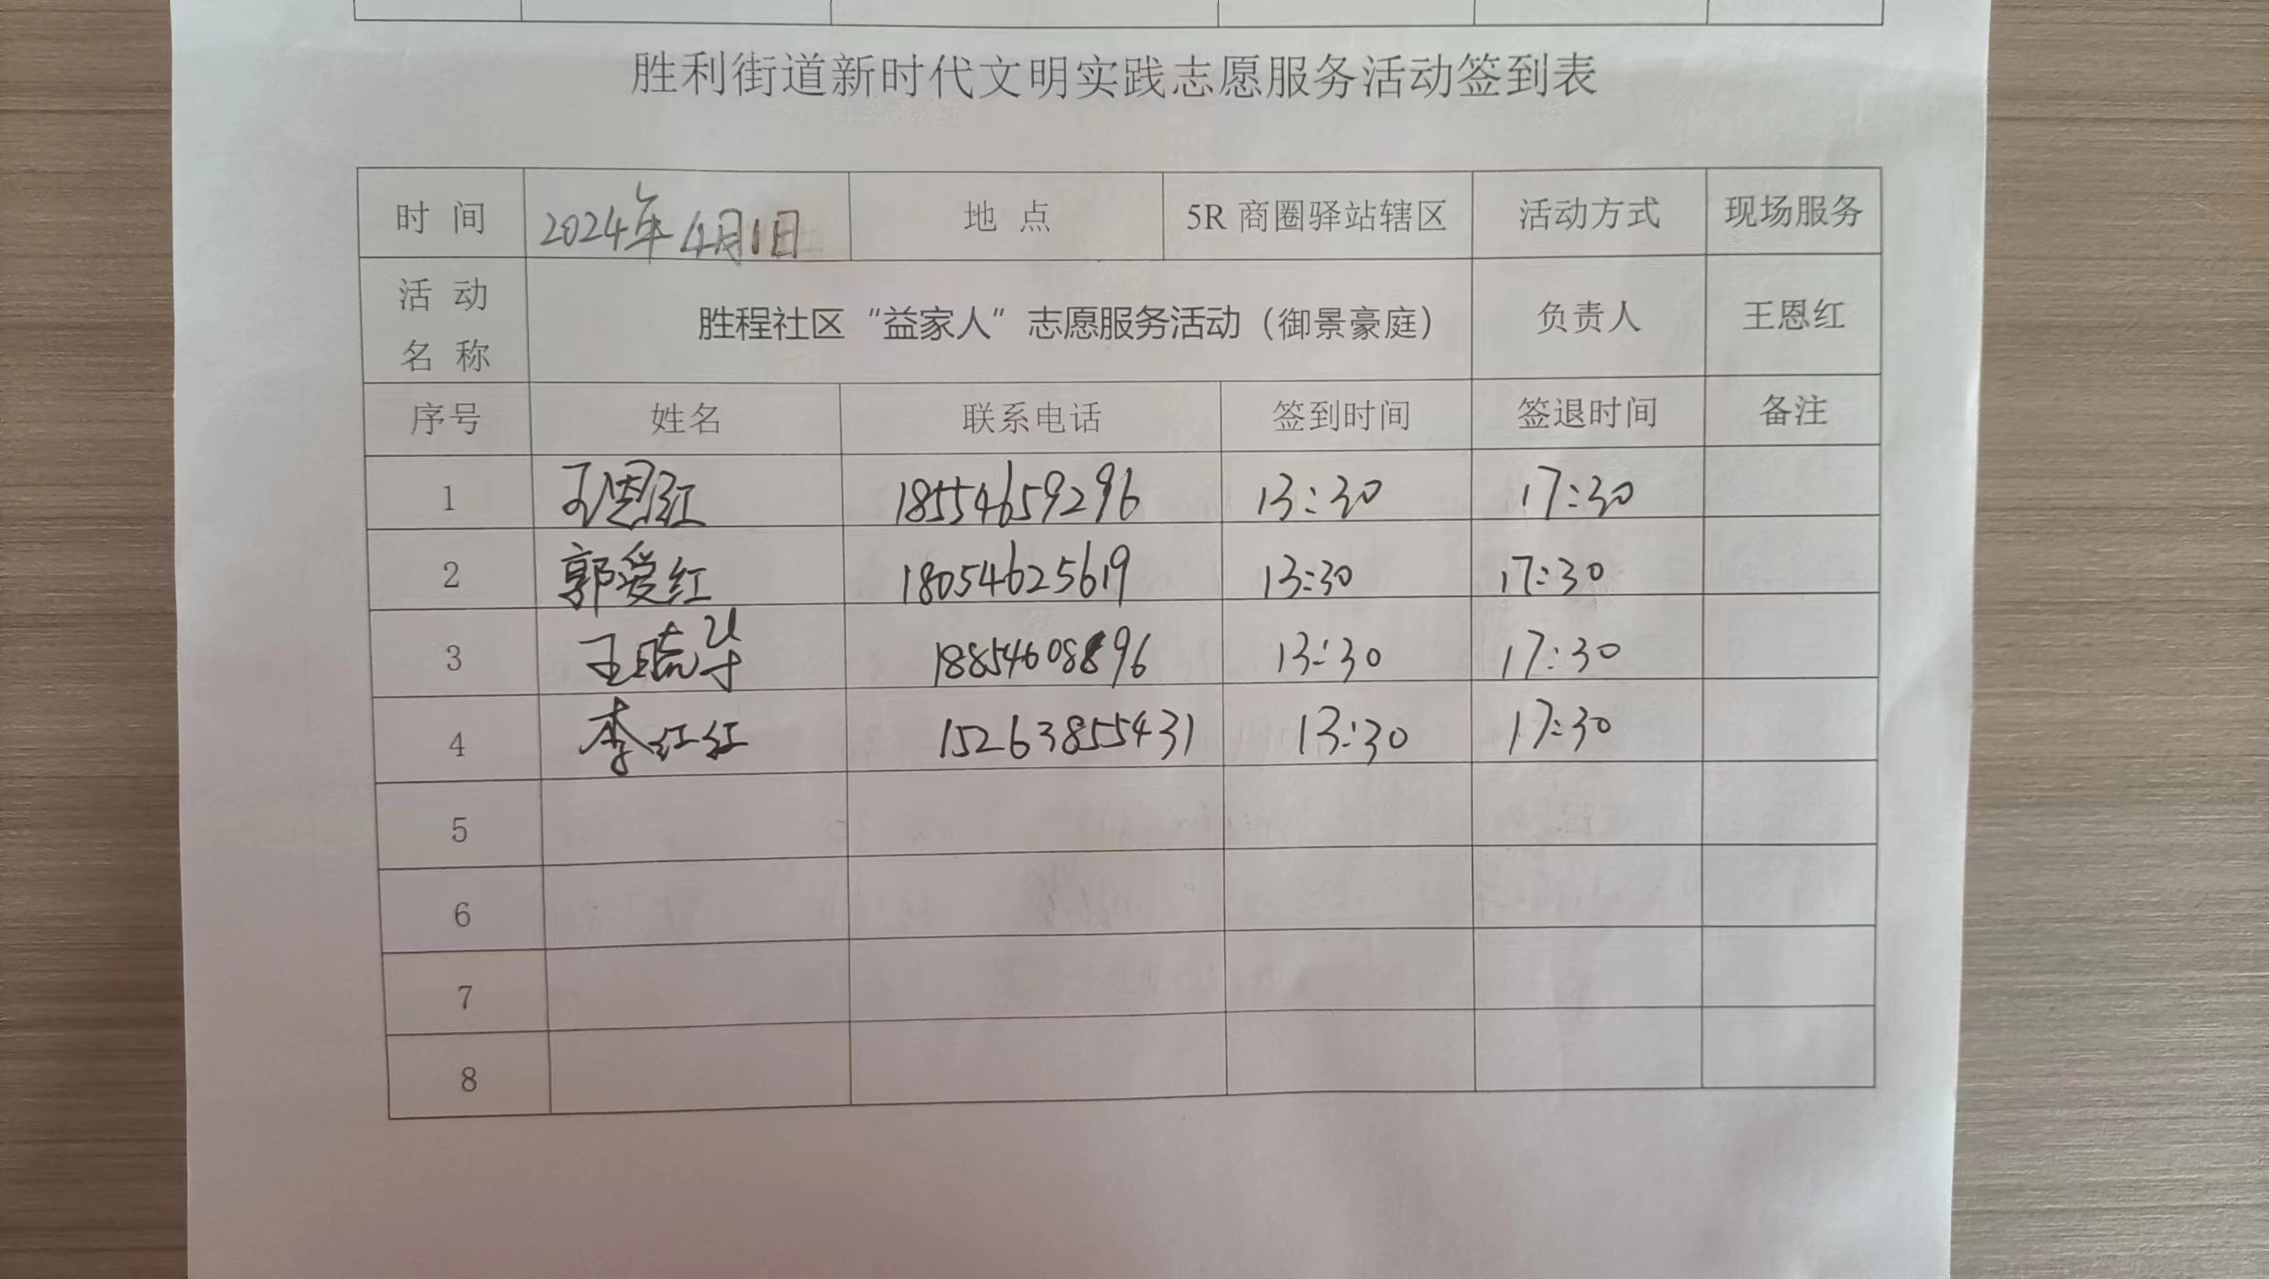 胜利街道新时代文明实践志愿服务活动签到表
时 间 2024年4月1日 地 点 5R 商圈驿站辖区 活动方式 现场服务
活 动 名 称 胜程社区“益家人”志愿服务活动（御景豪庭） 负责人 王恩红
序号 姓名 联系电话 签到时间 签退时间 备注
1 王恩红 18554659296 13:30 17:30
2 郭爱红 18054625619 13:30 17:30
3 王晓华 18854608896 13:30 17:30
4 李红红 15263855431 13:30 17:30
5
6
7
8